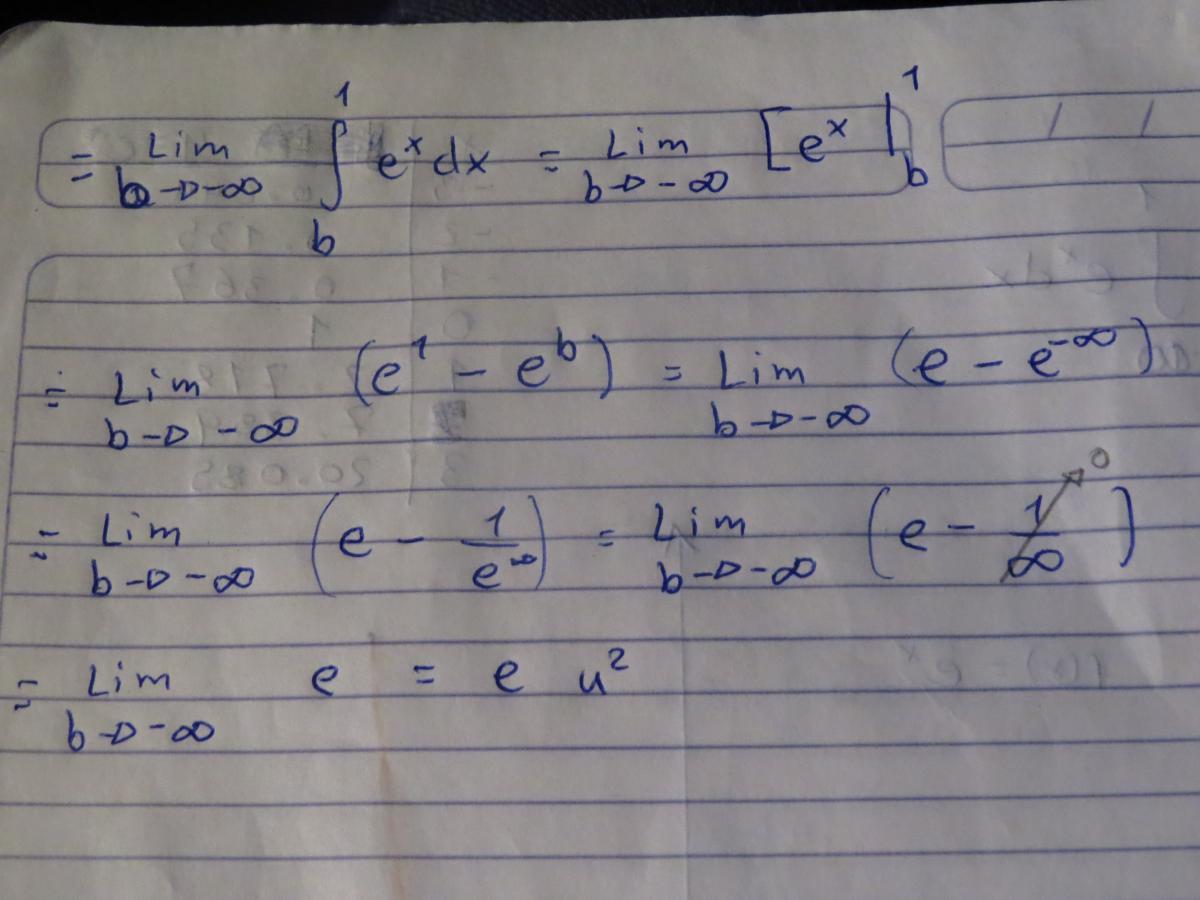 = Lim b→-∞ ∫_b^1 e^x dx = Lim b→-∞ [e^x|_b^1
= Lim b→-∞ (e^1 - e^b) = Lim b→-∞ (e - e^-∞)
= Lim b→-∞ (e - 1/e^∞) = Lim b→-∞ (e - 1/∞) 0
= Lim b→-∞ e = e u²